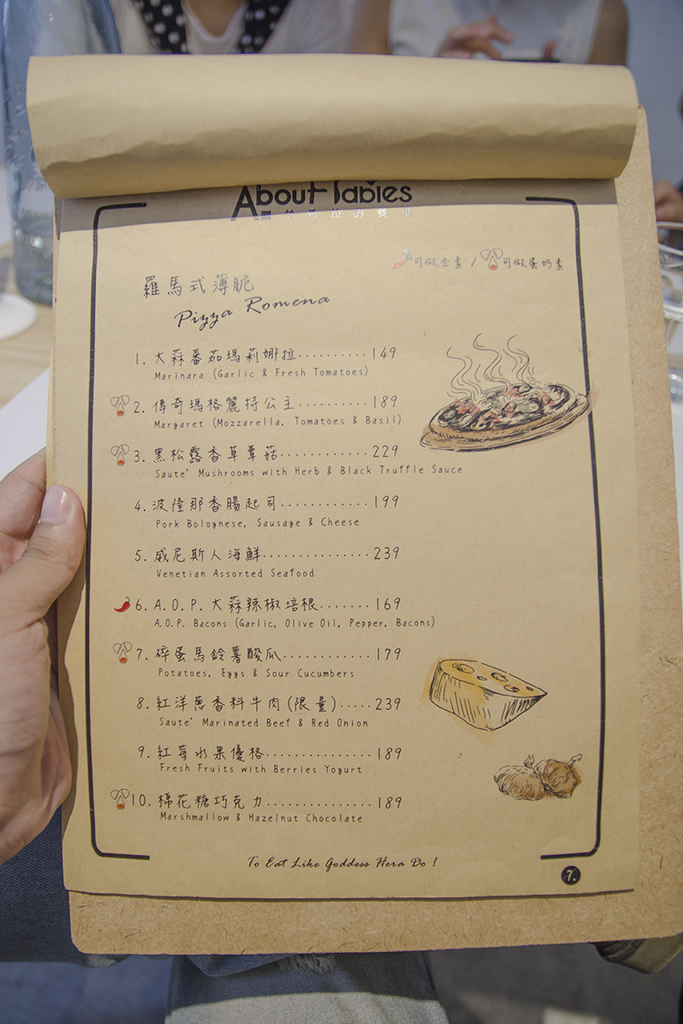 About Tables
可做全素 / 可做蛋奶素
羅馬式薄脆
Pizza Romena
1. 大蒜蕃茄瑪莉娜拉··········149
Marinara (Garlic & Fresh Tomatoes)
2. 傳奇瑪格麗特公主···········189
Margaret (Mozzarella, Tomatoes & Basil)
3. 黑松露香草蕈菇·············229
Saute' Mushrooms with Herb & Black Truffle Sauce
4. 波隆那香腸起司·············199
Pork Bolognese, Sausage & Cheese
5. 威尼斯人海鮮···············239
Venetian Assorted Seafood
6. A.O.P. 大蒜辣椒培根·······169
A.O.P. Bacons (Garlic, Olive Oil, Pepper, Bacons)
7. 碎蛋馬鈴薯酸瓜············179
Potatoes, Eggs & Sour Cucumbers
8. 紅洋蔥香料牛肉(限量)·····239
Saute' Marinated Beef & Red Onion
9. 紅莓水果優格···············189
Fresh Fruits with Berries Yogurt
10. 棉花糖巧克力···············189
Marshmallow & Hazelnut Chocolate
To Eat Like Goddess Hera Do !
7.